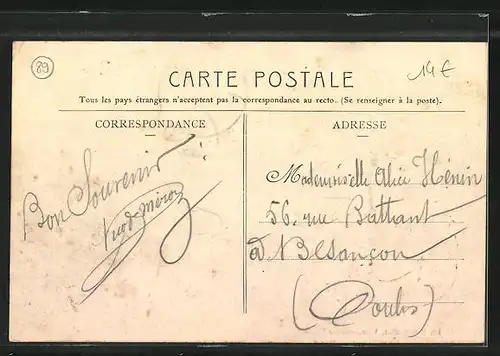 89
CARTE POSTALE
14€
Tous les pays étrangers n'acceptent pas la correspondance au recto. (Se renseigner à la poste).
CORRESPONDANCE
ADRESSE
Bon Souvenir
Mademoiselle Alice Hénin
56. rue Battant
à Besançon
(Doubs)